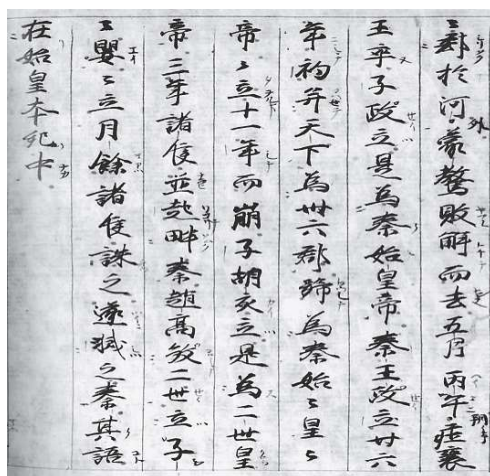 〻郄於河外蒙驁敗解而去五月丙午莊襄
王卒子政立是為秦始皇帝秦王政立廿六
年初并天下為卅六郡號為秦始〻皇〻
帝〻立十一年而崩子胡亥立是為二世皇
帝三年諸侯並起畔秦趙高殺二世立子
〻嬰〻立月餘諸侯誅之遂滅之秦其語
在始皇本紀中